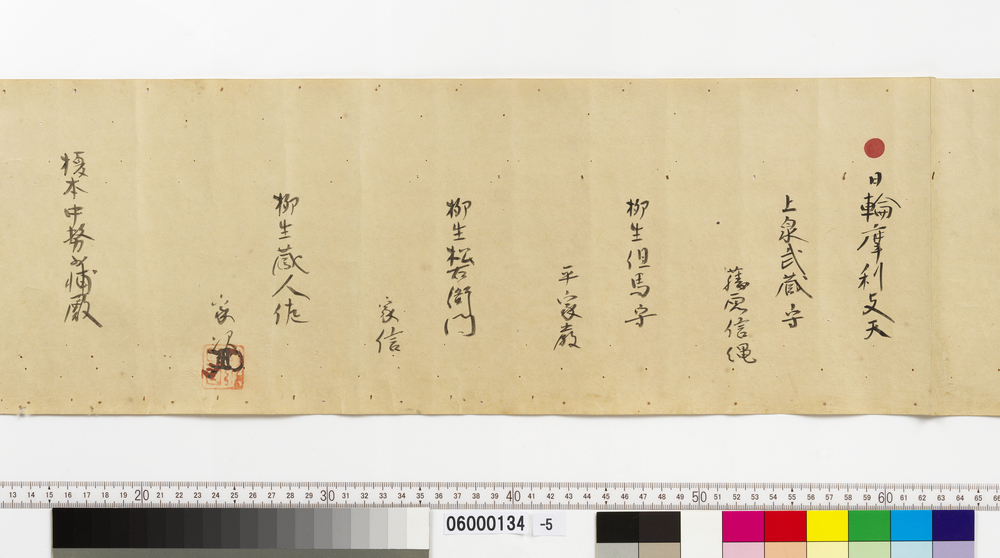 日輪摩利支天
上泉武蔵守
藤原信縄
柳生但馬守
平家嚴
柳生松右衛門
家信
柳生蔵人佐
家
榎本中務少輔殿
13 14 15 16 17 18 19 20 21 22 23 24 25 26 27 28 29 30 31 32 33 34 35 36 37 38 39 40 41 42 43 44 45 46 47 48 49 50 51 52 53 54 55 56 57 58 59 60 61 62 63 64 65 66
06000134 -5